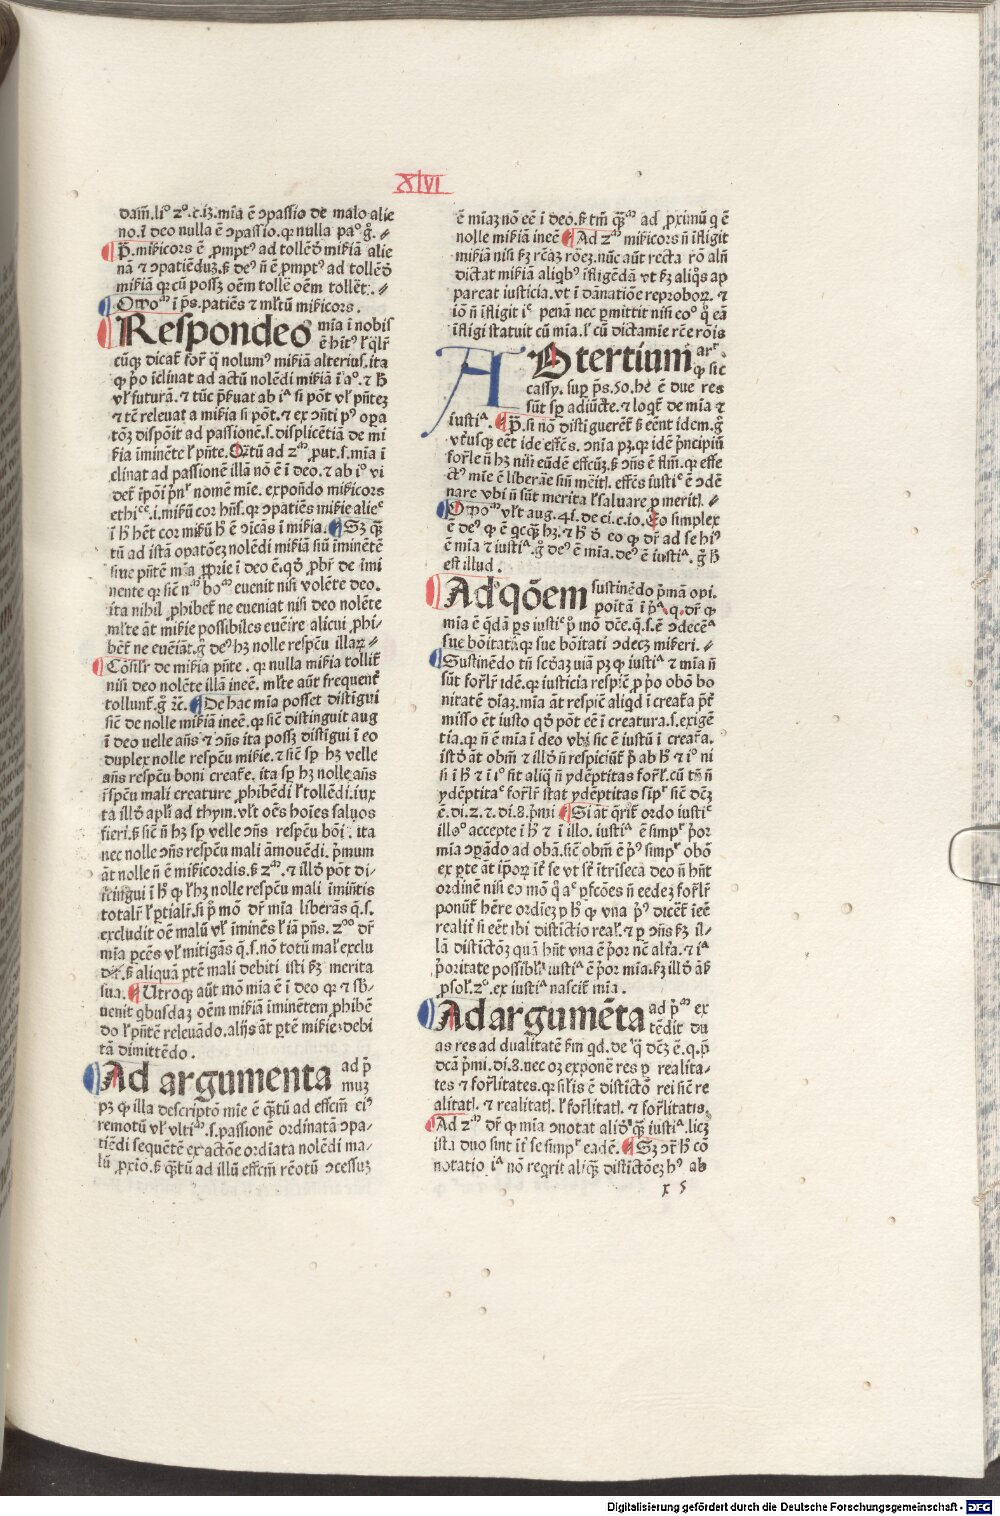 XLVI
dam̄. li° 2°. c. iꝫ. mīa ē ɔpassio de malo alie
no. ī deo nulla ē ɔpassio. qꝛ nulla pa° g̊.
P̄. mis̄icors ē ꝓmpt⁹ ad tollēd̄ mis̄iā alie
nā ⁊ ɔpatiēduꝫ. sꝫ de⁹ n̄ ē ꝓmpt⁹ ad tollēd̄
mis̄iā qꝛ cū possꝫ oēm tolle oēm tollet.
Oppoᵐ ī ps̄. patiēs ⁊ ml̄tū mis̄icors.
Respondeo mīa ī nobis
ē hīt⁹ ł q̄lr̄
cūqꝫ dicat̄ for̄ q̄ nolum⁹ mis̄iā alterius. ita
ꝙ p̄o īclinat ad actū nolēdi mis̄iā ī a°. ⁊ h̄
vł futurā. ⁊ tūc p̄s̄uat ab iᵃ si pōt vł pn̄teꝫ
⁊ tē releuat a mis̄ia si pōt. ⁊ ex ɔn̄ti p⁹ oꝑa
tōꝫ dispōit ad passionē. s. displicētiā de mi
s̄ia īminēte ł pn̄te. Q̄tū ad 2ᵐ. put. s. mīa ī
clinat ad passionē illā nō ē ī deo. ⁊ ab i° vi
det̄ īpōi pn̄r nomē mīe. expon̄do mis̄icors
ethiᶜᵉ. i. mis̄ū cor hn̄s. qꝛ ɔpatiēs mis̄ie alieᶜ
ī h̄ hēt cor mis̄ū h̄ ē ɔicās ī mis̄ia. Sꝫ q̄
tū ad istā opatōeꝫ nolēdi mis̄iā siū īminētē
siue pn̄tem mīa ꝓprie ī deo ē. qd̄ ꝓbr̄ de imi
nente qꝛ sic̄ nᵐ boᵐ euenit nisi volēte deo.
ita nihil ꝓhibet̄ ne eueniat nisi deo nolēte
ml̄te āt mis̄ie possibiles euēire alicui ꝓhi-
bēt̄ ne euēiāt. g̊ de⁹ hꝫ nolle respc̄u illaꝝ
Cōsilr̄ de mis̄ia pn̄te. qꝛ nulla mis̄ia tollit̄
nisi deo nolēte illā ineē. ml̄te aūt frequent̄
tollunt̄. g̊ ⁊c̄. De hac mīa posset distīgui
sic̄ de nolle mis̄iā ineē. qꝛ sic̄ distinguit aug
ī deo uelle an̄s ⁊ ɔn̄s ita possꝫ distīgui ī eo
duplex nolle respc̄u mis̄ie. ⁊ sic̄ sp̄ hꝫ velle
an̄s respc̄u boni creat̄e. ita sp̄ hꝫ nolle an̄s
īspc̄u mali creature ꝓhibēdi ł tollēdi. iux
ta illd̄ apl̄i ad thym. vl̄t oēs hoīes saluos
fieri. sꝫ sic̄ n̄ hꝫ sp̄ velle ɔn̄s respc̄u bōi. ita
nec nolle ɔn̄s respc̄u mali āmouēdi. p̄mum
āt nolle n̄ ē mis̄icordis. sꝫ 2ᵐ. ⁊ illd̄ pōt di-
stingui ī h̄ ꝙ ł hꝫ nolle respc̄u mali imin̄tis
totalr̄ ł ꝑtialr̄. si p̄ mō dr̄ mīa liberās q̄. s.
excludit oē malū vł iminēs ł iā pn̄s. 2°° dr̄
mīa ꝑcēs vł mitigās q̄. s. nō totū mal̄ exclu
dit. sꝫ aliquā ꝑtē mali debiti isti sꝫ merita
sua. Utroqꝫ aūt mō mīa ē ī deo qꝛ ⁊ sb̄-
uenit qbusdaꝫ oēm mis̄iā iminētem ꝓhibē
do ł pn̄tē releuādo. alijs āt ꝑtē mis̄ie debi
tā dimittēdo.
Ad argumenta ad p̄
muꝫ
pꝫ ꝙ illa descriptō mīe ē q̄tū ad effc̄m ei⁹
remotū vł vltiᵐ. s. passionē ordinatā ɔpa-
tiēdi sequētē ex actōe ordīata nolēdi ma-
lū ꝓxīo. sꝫ q̄tū ad illū effc̄m rēotū ɔcessuꝫ
ē mīaꝫ nō eē ī deo. sꝫ tm̄ q̄ᵐ ad ꝓximū q̄ ē
nolle mis̄iā ineē Ad 2ᵐ mis̄icors n̄ īfligit
mis̄iā nisi sꝫ rēaꝫ rōeꝫ. nūc aūt recta rō aln̄
dictat mis̄iā aliqb⁹ īfligēdā vt sꝫ aliq̄s ap
pareat iusticia. vt ī dānatiōe reproboꝝ. ⁊
iō n̄ īfligit iᶜ penā nec ꝑmittit nisi co° q̄ eā
īfligi statuit cū mīa. ł cū dictamīe rc̄e rōis
AD tertium arʳ.
ꝙ sic
cassy. suꝑ ps̄. 50. hē ē due res
sūt sp̄ adiūcte. ⁊ loqt̄ de mīa ⁊
iustiᵃ. P̄. si nō distīguerēt̄ sꝫ eēnt idem. g̊
vt̄usqꝫ eēt idē effc̄s. ɔn̄ia pꝫ. qꝛ idē p̄ncipiū
for̄le n̄ hꝫ nisi eūdē effcūꝫ. sꝫ ɔn̄s ē flm̄. qꝛ effe
ct⁹ mīe ē liberāe sin̄ meīt̄. effc̄s iustiᶜ ē ɔdē
nare vbi n̄ sūt merita ł saluare ꝓ merit̄.
Oppoᵐ vl̄t aug. 41. de ci. c. io. Eo simplex
ē de⁹ ꝙ ē qcqꝫ hꝫ. ⁊ h̄ d̄ eo ꝙ dr̄ ad se hi⁹
ē mīa ⁊ iustiᵃ. g̊ de⁹ ē mīa. de⁹ ē iustiᵃ. g̊ h̄
est illud.
Ad qōem sustinēdo p̄mā opi.
poitā ī pᵃ. q. dr̄ ꝙ
mīa ē q̄dā ps iustiᶜ p̄ mō dc̄e. q̄. s. ē ɔdecēᵃ
sue bōitatꝫ qꝛ sue bōitati ɔdecꝫ mis̄eri.
Sustinēdo tn̄ sc̄daꝫ uiā pꝫ ꝙ iustiᵃ ⁊ mīa n̄
sūt for̄lr̄ idē. qꝛ iusticia respic̄ ꝓ p̄o obō bo
nitatē dīaꝫ. mīa āt respic̄ aliqd̄ ī creat̄a p̄t̄
misso ēt iusto qd̄ pōt eē ī creatura. s. exigē
tia. qꝛ n̄ ē mīa ī deo vbꝫ sic ē iustū ī creat̄a.
istd̄ āt obm̄ ⁊ illd̄ n̄ respiciūt̄ p̄ ab h⁹ ⁊ i° ni
si ī h̄ ⁊ ī i° sit aliq̄ n̄ ydēptitas for̄ł. cū tn̄ n̄
ydēptitaᶜ for̄lr̄ stat ydēptitas sīpʳ sic̄ dc̄ꝫ
ē. di. 2. ⁊. di. 8. p̄mi Si āt q̄rit̄ ordo iustiᶜ
illoᵒ accepte ī h̄ ⁊ ī illo. iustiᵃ ē simpʳ p̄or
mīa ɔꝑādo ad obā. sic̄ obm̄ ē p̄⁹ simpʳ obō
ex ꝑte āt ip̄oꝝ it̄ se vt st̄ īt̄risecā deo n̄ hn̄t
ordinē nisi eo mō q̄ aᶜ ꝑfcōes n̄ eedeꝫ for̄lr̄
ponūt̄ hēre ordīeꝫ ꝑ h° ꝙ vna p̄⁹ dicēt̄ īeē
realit̄ si eēt ibi distictio real̄. ⁊ ꝑ ɔn̄s sꝫ il-
lā distictōꝫ quā hn̄t vna ē p̄or nē alt̄a. ⁊ iᵃ
p̄oritate possibłi iustiᵃ ē p̄or mīa. sꝫ illd̄ ās̄
psol̄. 2°. ex iustiᵃ nascit̄ mīa.
Ad argumēta ad pᵐ ex
tēdit du
as res ad dualitatē s̄m qd. de⁹ q̄ dc̄ꝫ ē. q. p̄
dc̄ā p̄mi. di. 8. nec oꝫ exponē res ꝑ realita-
tes ⁊ for̄litates. qꝛ sil̄is ē distictō rei sic̄ re
alitat̄. ⁊ realitat̄. ł for̄litat̄. ⁊ for̄litatis.
Ad 2ᵐ dr̄ ꝙ mīa ɔnotat alid̄ q̄ iustiᵃ. licꝫ
ista duo sint it̄ se simpʳ eadē. Sꝫ ɔt̄ h̄ cō
notatio iᵃ nō reqrit aliq̄ distictōeꝫ h⁹ ab
x 5
Digitalisierung gefördert durch die Deutsche Forschungsgemeinschaft - DFG